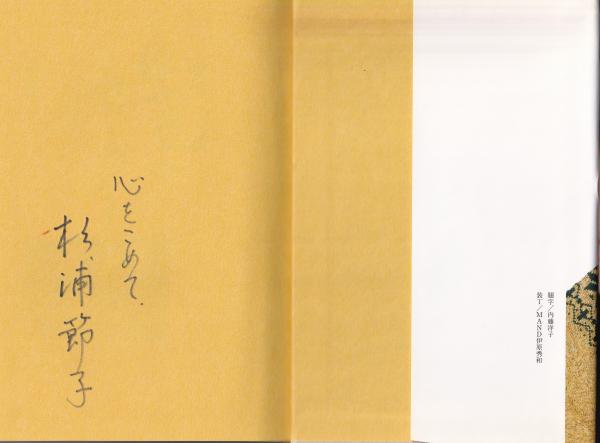 題字/内藤洋子
装丁/MAND伊原秀和
心をこめて.
杉浦節子